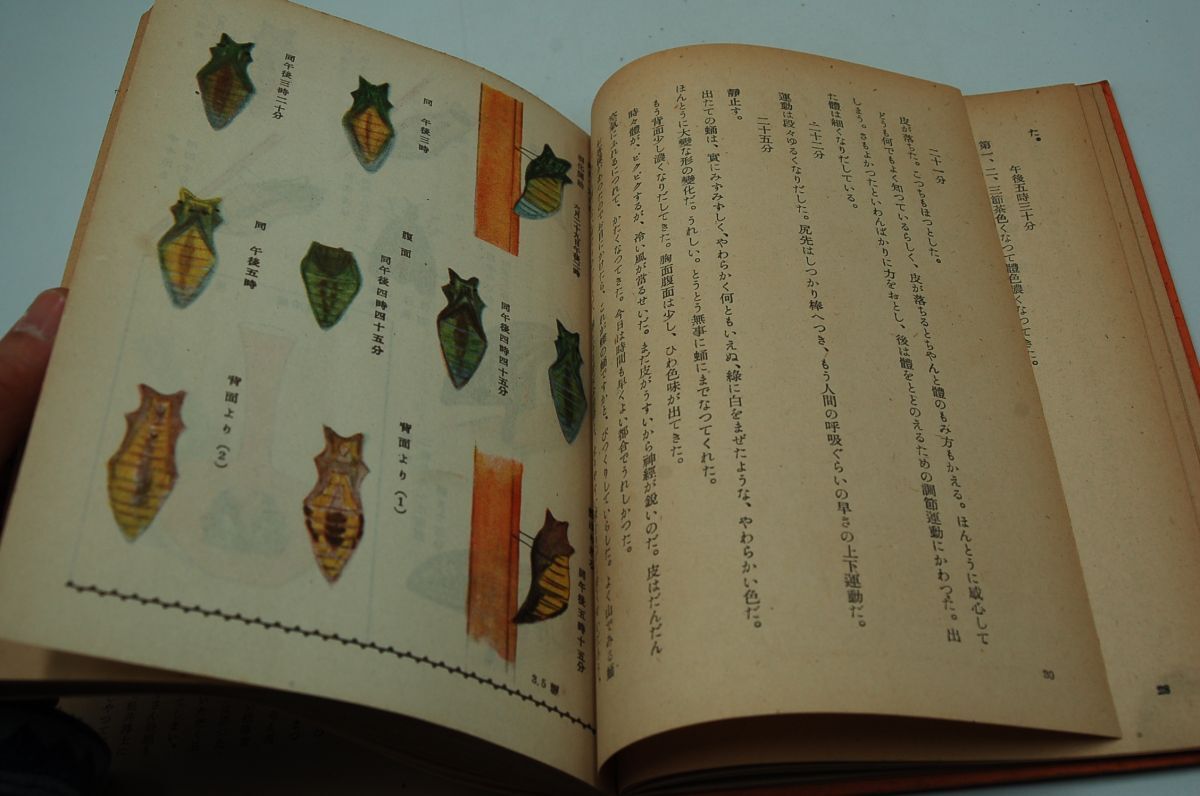 た。
午後五時三十分
第一、二、三節茶色くなつて體色濃くなつてきた。
28
二十一分
皮が落ちた。こつちもほつとした。
どうも何でもよく知つているらしく、皮が落ちるとちやんと體のもみ方もかえる。ほんとうに感心して
しまう。さもよかつたといわんばかりに力をおとし、後は體をととのえるための調節運動にかわつた。出
た體は細くなりだしている。
二十二分
運動は段々ゆるくなりだした。尻先はしつかり棒へつき、もう人間の呼吸ぐらいの早さの上下運動だ。
二十五分
靜止す。
出たての蛹は、實にみずみずしく、やわらかく何ともいえぬ、綠に白をまぜたような、やわらかい色だ。
ほんとうに大變な形の變化だ。うれしい。とうとう無事に蛹にまでなつてくれた。
もう背面少し濃くなりだしてきた。胸面腹面は少し、ひわ色味が出てきた。
時々體が、ピクピクするが、冷い風が當るせいだ。まだ皮がうすいから神經が銳いのだ。皮はだんだん
空氣にふれるにつれて、かたくなつてきた。今日は時間も早くよい都合でうれしかつた。
お目にかけたら、これが蝶の蛹ですかと、びつくりしていらした。よく山でみる蛹
30
六月二十九日午後二時
同 午後三時
同午後三時二十分
同午後四時四十五分
腹面
同午後四時四十五分
同 午後五時
同午後五時十五分
背面より(1)
背面より(2)
3,5 靜